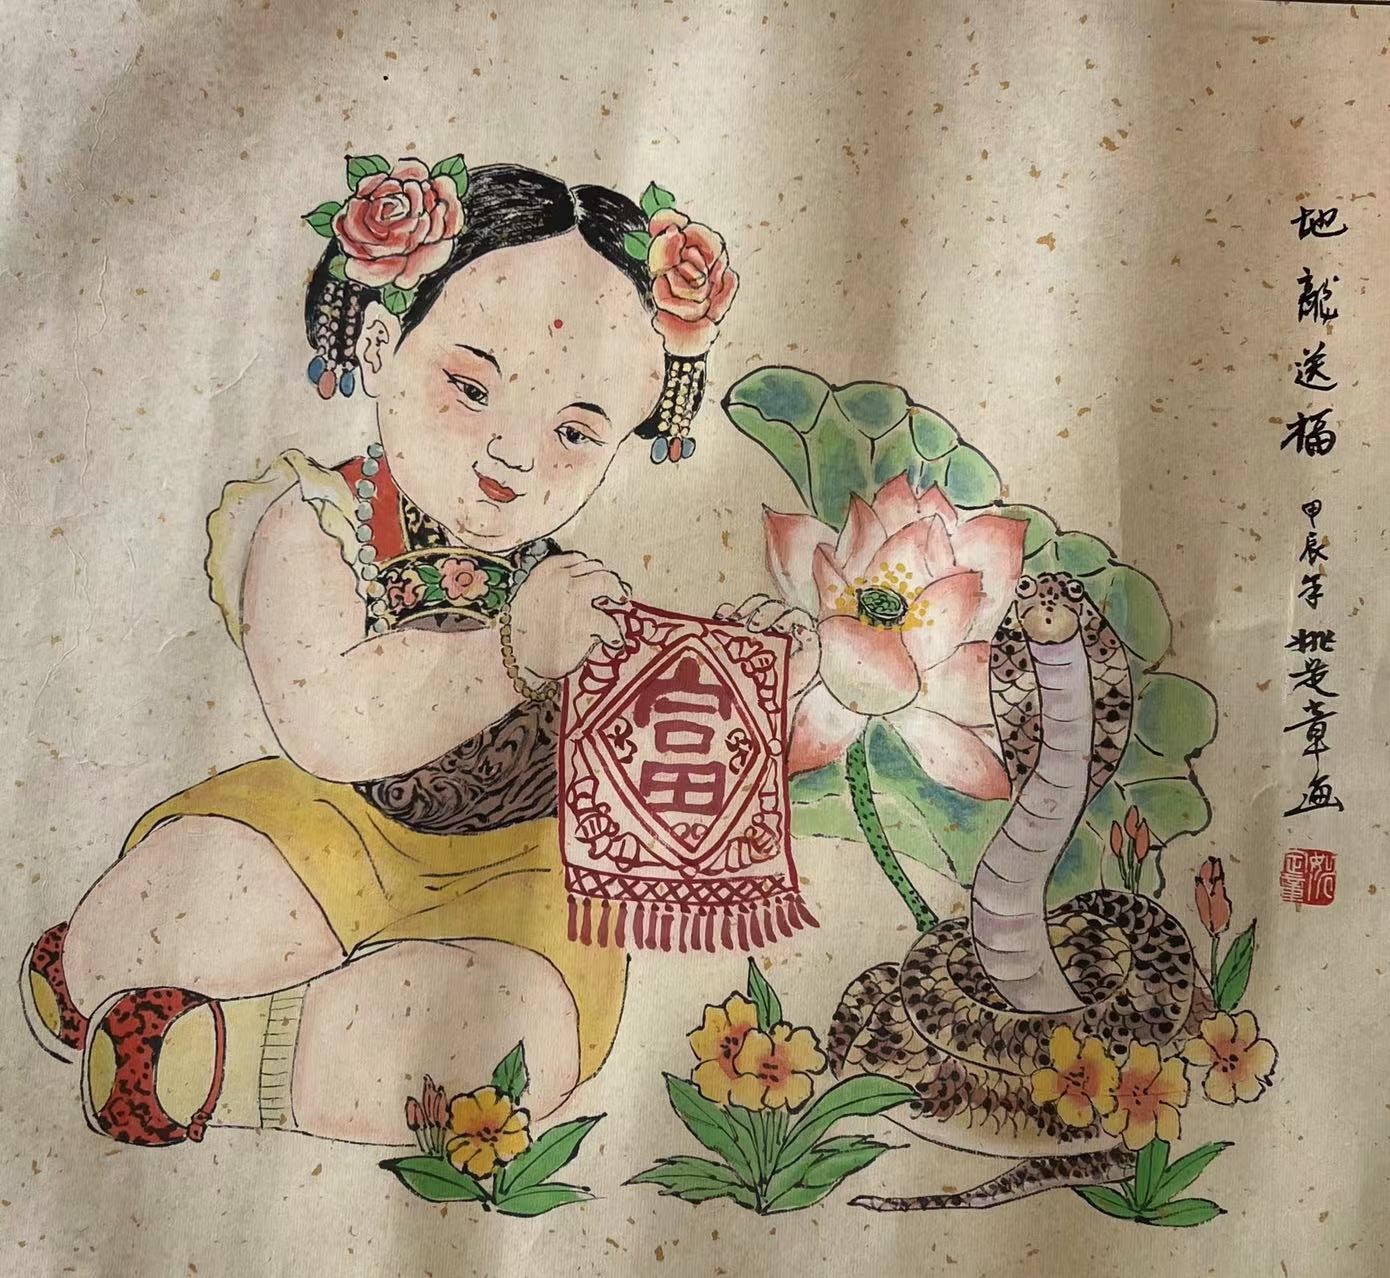 地龍送福 甲辰年 姚是章画
富